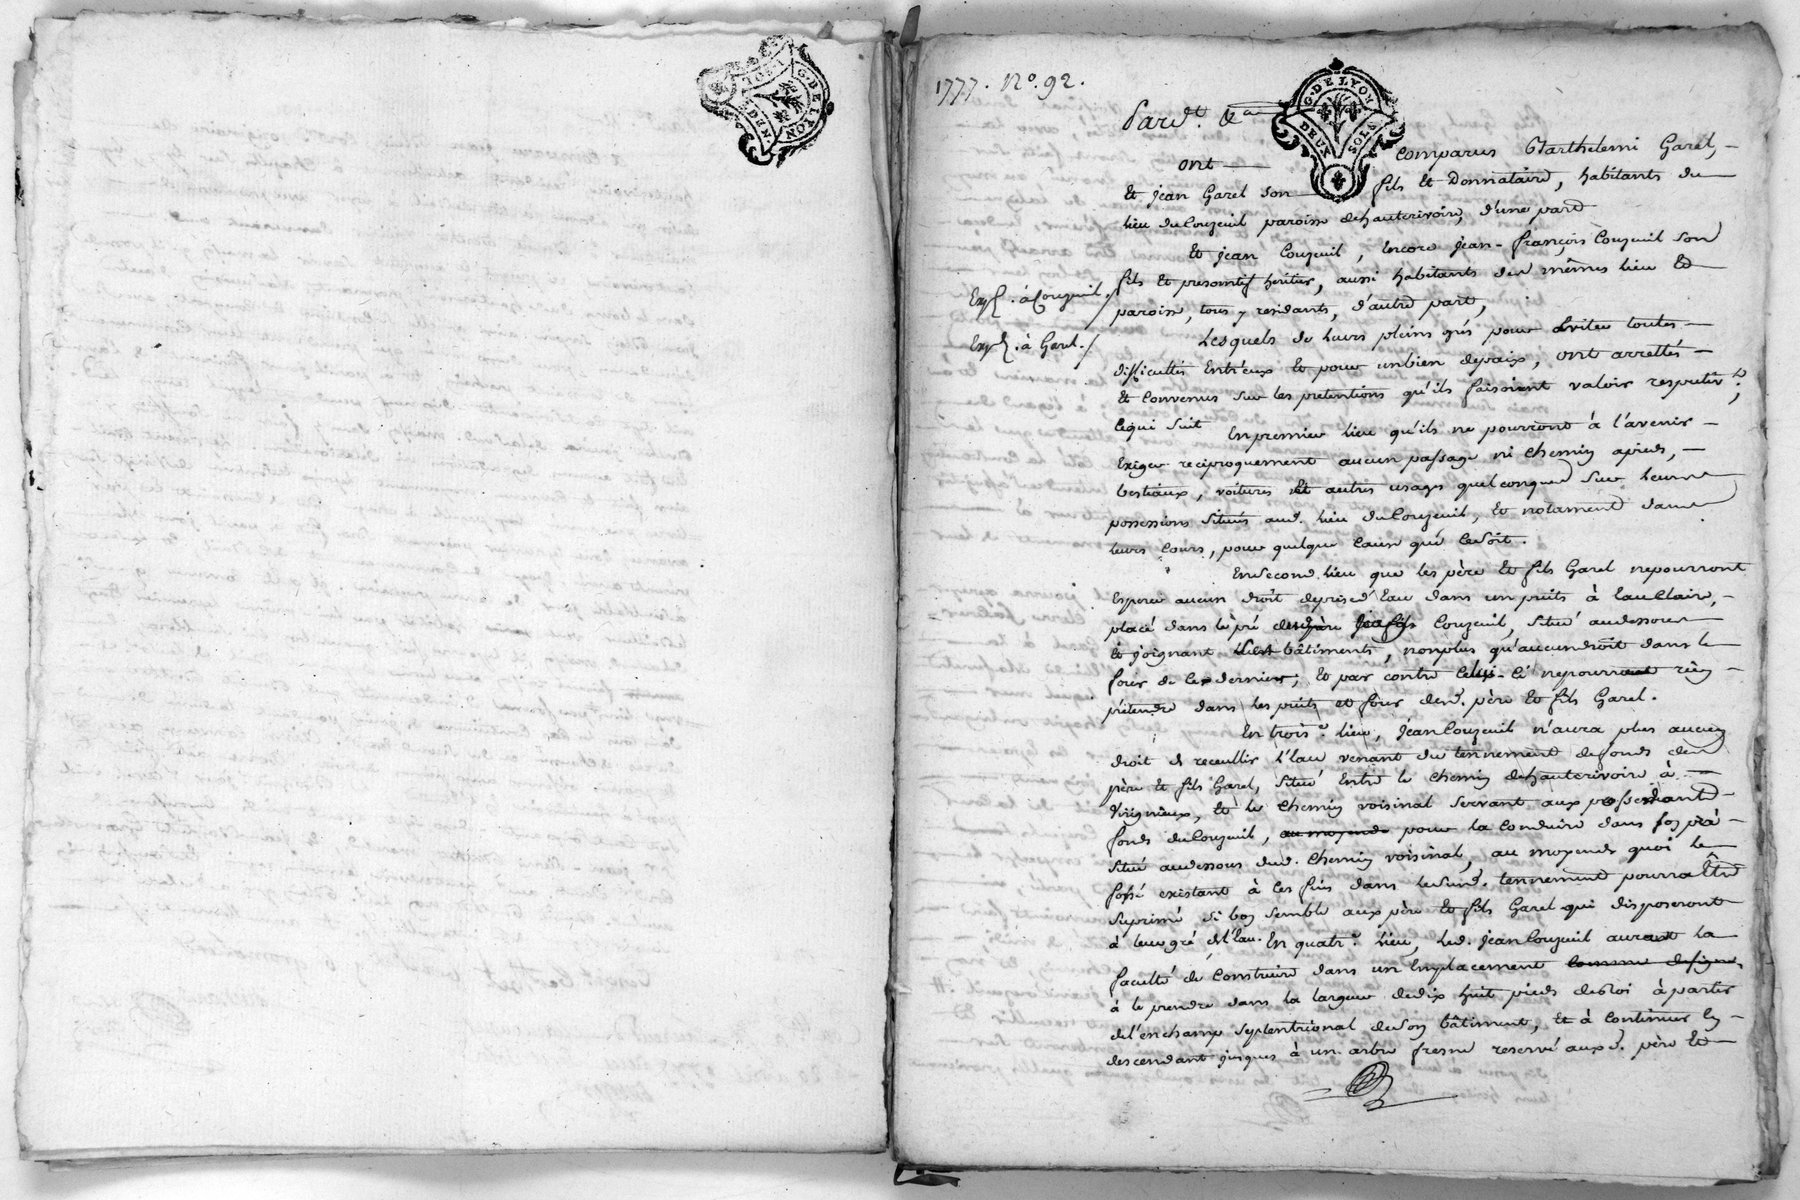 G. DE LYON
1777. N.º 92.
G. DE LYON
DEUX SOLS
Pard.t &a
ont comparus Barthelemi Garel,
et jean Garel son fils et Donnataire, habitants du
lieu du Couzeuil paroisse dehauterivoire, d'une part
Et jean Couzeuil, encore jean-françois Couzeuil son
fils et presomtif héritier, aussi habitants des mêmes lieu et
paroisse, tous y residants, d'autre part,
Exp. à Couzeuil.
Exp. à Garel.
Lesquels de leurs pleins grés pour eviter toutes
difficultés entr'eux et pour unbien depaix, ont arrettés
et convenus sur les pretentions qu'ils faisoient valoir respectiv.t,
cequi suit En premier lieu qu'ils ne pourront à l'avenir
exiger reciproquement aucun passage ni chemin apieds,
bestiaux, voitures et autres usages quelconques sur leurs
possessions situés aud. lieu du Couzeuil, et notament dans
leurs cours, pour quelque cause que cesoit.
Ensecond lieu que les père et fils Garel nepourront
esperer aucun droit deprise d'eau dans un puits à eau claire,
placé dans le pré Couzeuil, situé audessous
et joignant bâtiments, nonplus qu'aucundroit dans le
four de ce dernier; et par contre celui-ci nepourra rien
prétendre dans les puits et four desd. père et fils Garel.
En trois.e lieu, jean Couzeuil n'aura plus aucun
droit de receullir l'eau venant du tennement defonds des
père et fils Garel, situé entre le chemin dehauterivoire à
Virignieux, et le chemin voisinal servant aux possedants
fonds du Couzeuil, au moyende pour la conduire dans son pré
situé audessous dud. chemin voisinal, au moyende quoi le
fossé existant à ces fins dans lesusd. tennement pourra être
suprimé si bon semble aux père et fils Garel qui disposeront
à leur gré del'eau. En quatr.e lieu, led. jean Couzeuil aura la
faculté de construire dans un emplacement
à le prendre dans la largeur dedix huit pieds deRoi à partir
de l'enchamp septentrional deson bâtiment, et à continuer en
descendant jusques à un arbre fresne reservé auxd. père et